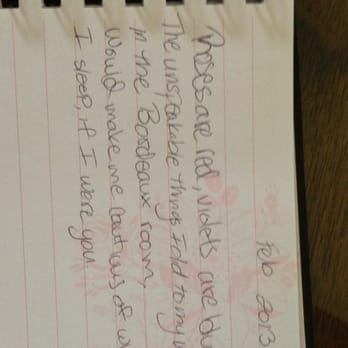 Feb 2013
Roses are red, violets are blu
The unspeakable things told to my
in the Bordeaux room,
Would make me cautious of w
I sleep, if I were you.